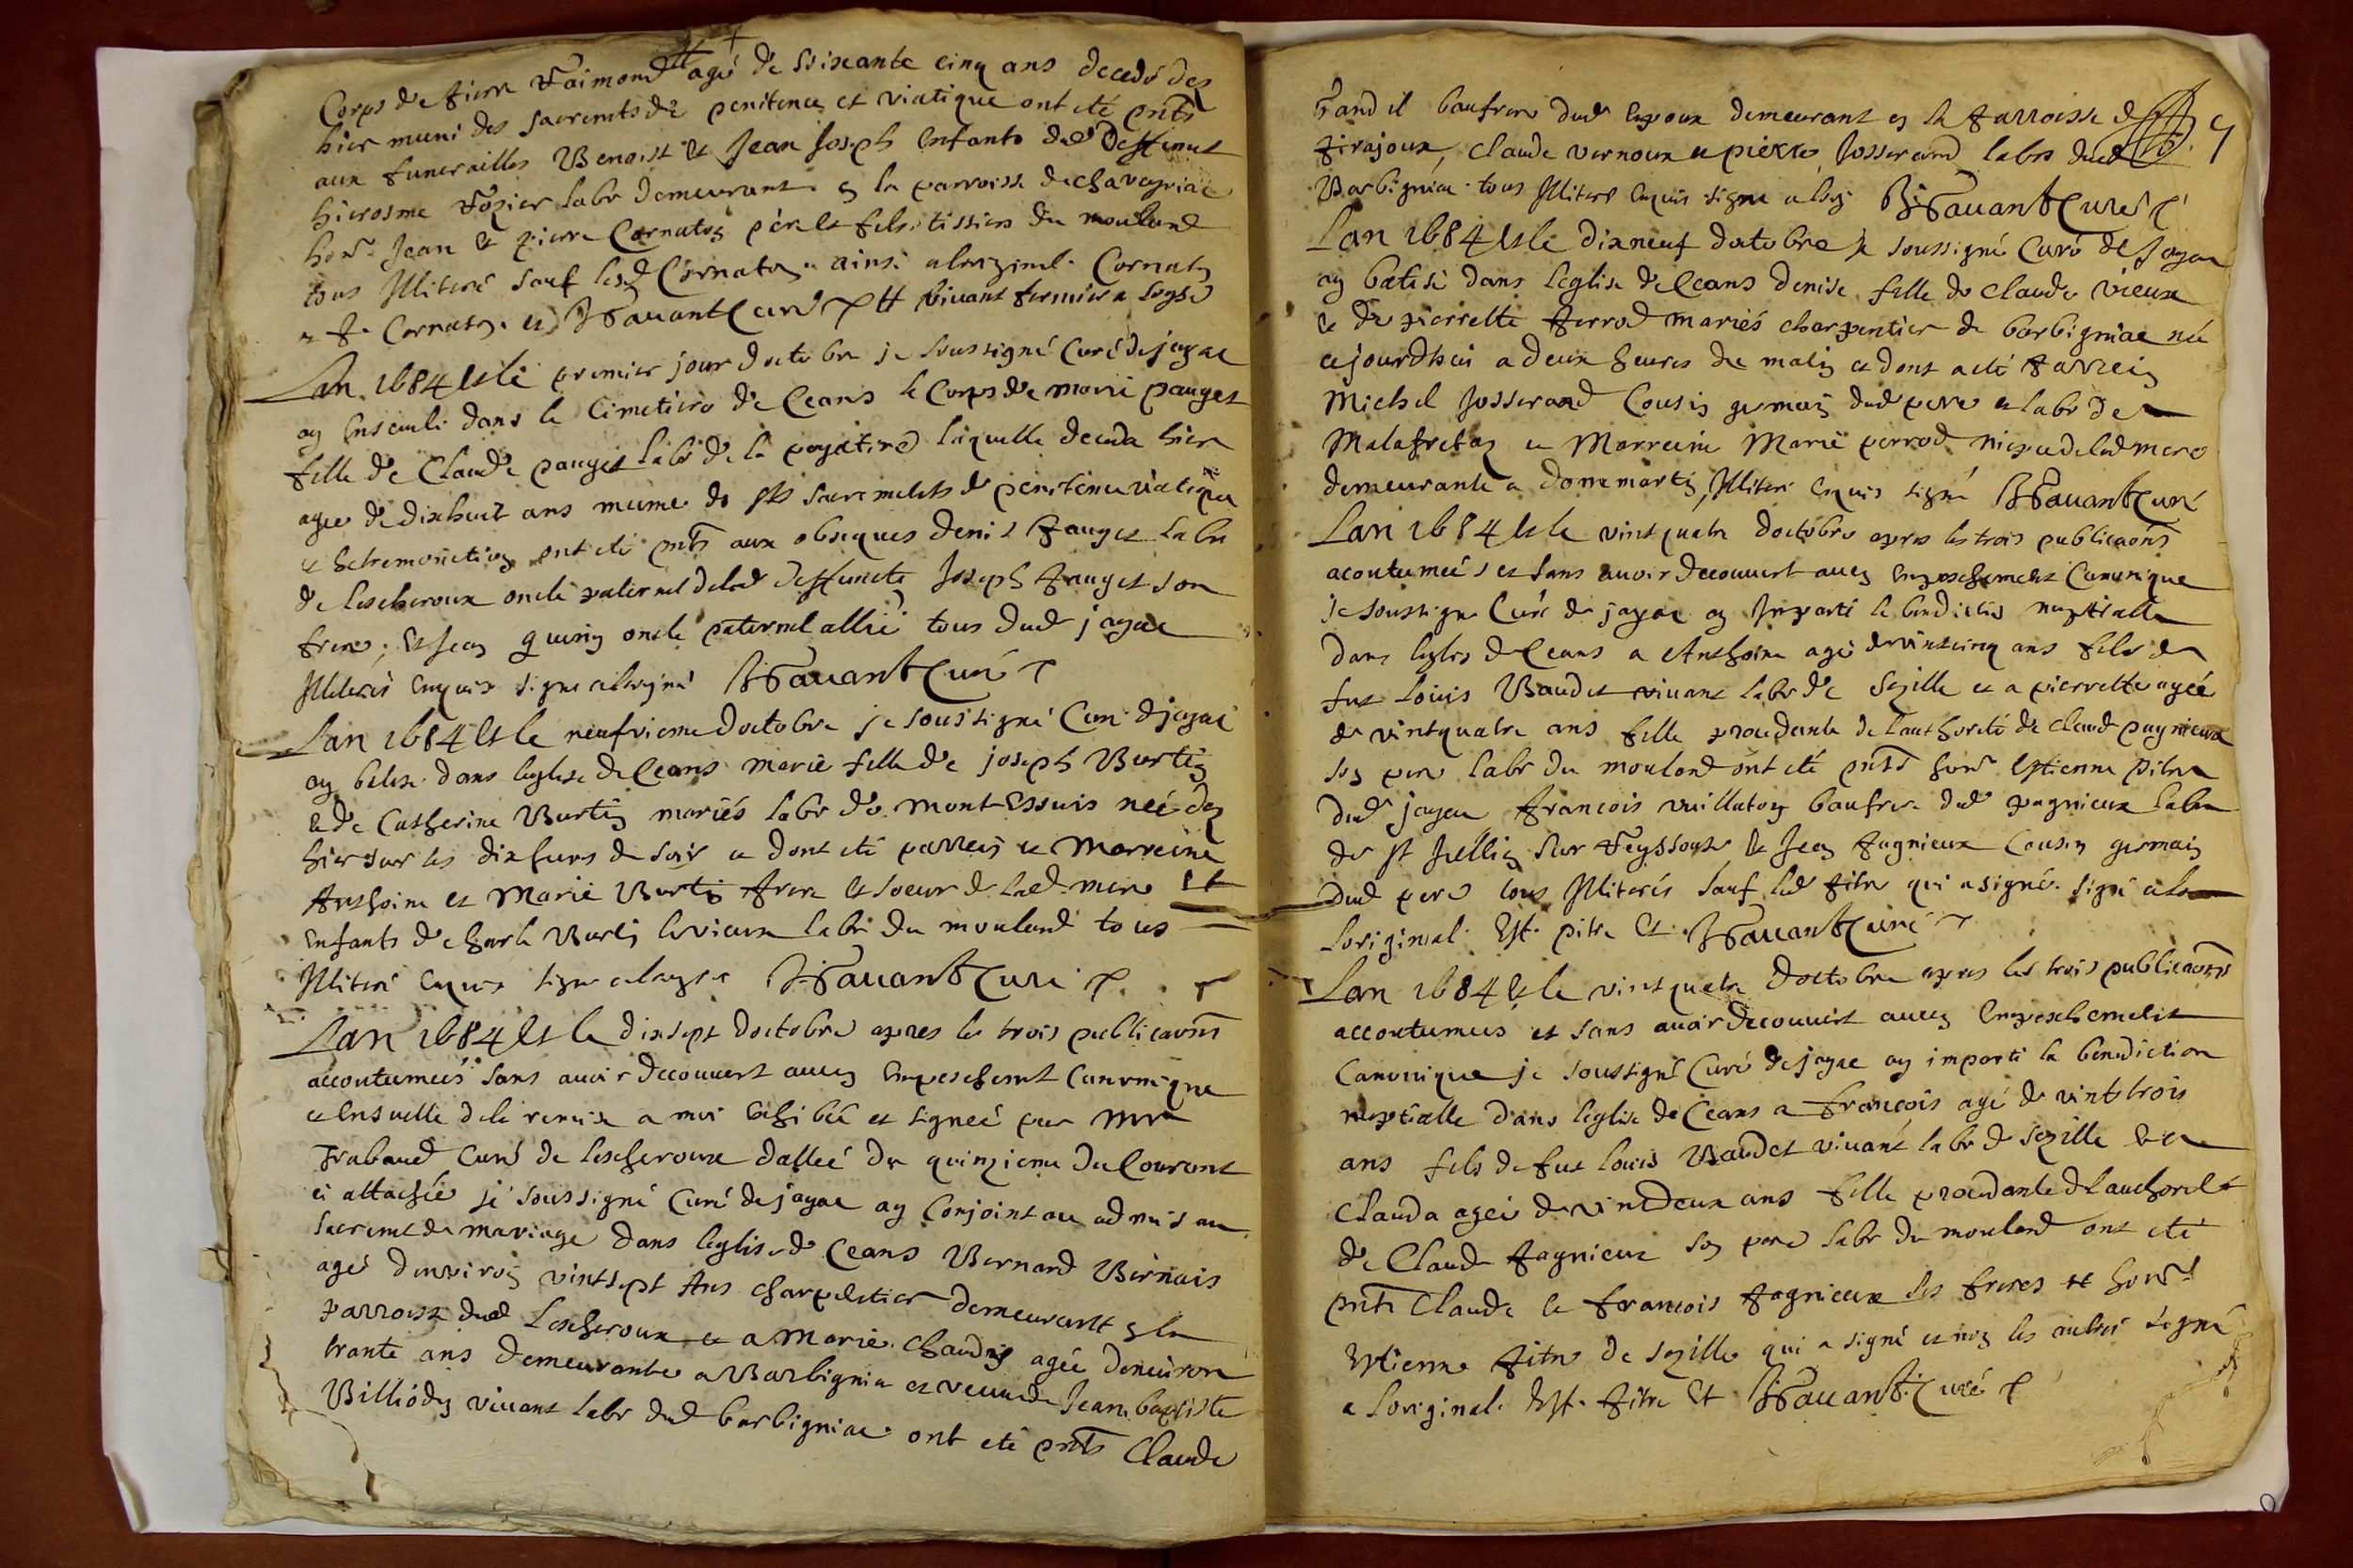 Corps de pierre Raimond # agé de soixante cinq ans decedé des
hier muni des sacremts de penitence et viatique ont eté pnts
aux funerailles Benoist & Jean Joseph enfants dud deffunct
hierosme labr demeurant en la parroisse de chavagniac
honr Jean & pierre Cornaton pere & fils tissiers du moulond
tous Illiteré sauf lesd Cornaton ainsi aloriginal. Cornaton
P. Cornaton. et Curé # vivant fermier a
Lan 1684 & le premier jour doctobre je soussigné Curé de jayac
ay enseveli dans le Cimetiere de Ceans le Corps de marie pauget
fille de Claude pauget labr de la laquelle deceda hier
agee de dixhuit ans munie de sts sacrements de penitence viatique
& hextremonction ont eté pnts aux obseques denis pauget labr
de lescheroux oncle paternel delad deffuncte Joseph pauget son
frere; & Jean guerin oncle paternel allié tous dud jayac
Illiterés enquis signé aloriginal Curé
Lan 1684 & le neufvieme doctobre je soussigné Curé de jayac
ay batisé dans leglise de Ceans marie fille de joseph Burtin
& de Catherine Burtin mariés labr de mont Essuis née des
hier sur les dix heures du soir a dont eté parrein & marreine
Anthoine et Marie Burtin frere & soeur de lad mere &
enfants de charle Burtin levieux labr du moulond tous
Illiteré enquis signé Curé
Lan 1684 & le dixsept doctobre apres les trois publicaons
accoutumées sans avoir decouvert aucun empeschemt Canonique
& ensuitte dela remise a moi exhibée et signée par Mre
Trabaud Curé de lescheroux dattée du quinzieme du Courant
ci attachée je soussigné Curé de jayac ay Conjoint au admis au
sacremt de mariage dans leglise de Ceans Bernard Bernais
agé denviron vintsept Ans charpentier demeurant en la
parroisse dud Lescheroux & a Marie Chaudin agée denviron
trante ans demeurante a Barbigniac et veuve de Jean baptiste
Billiodin vivant labr dud barbigniac ont eté pnts Claude
baufrere dud Espoux demeurant en la parroisse de 9
pirajoux, Claude vernoux & pierre Josserand labrs dud
Barbigniac tous Illiteré enquis signé Curé
Lan 1684 & le dixneuf doctobre je soussigné Curé de jayac
ay batisé dans leglise de Ceans denise fille de claude vieux
& de pierrette perrod mariés charpentier de barbigniac née
cejourdhui a deux heures de matin & dont a eté parrein
Michel Josserand Cousin germain dud pere & labr de
Malafretaz & Marreine Marie perrod niepce de lad mere
demeurante a Dommartin, Illiteré enquis signé Curé
Lan 1684 & le vintquatre doctobre apres les trois publicaons
acoutumées et sans avoir decouvert aucun empeschement Canonique
je soussigné Curé de jayac ay Imparti la benediction nuptialle
dans leglise de Ceans a Anthoine agé de vintcinq ans fils de
fut Louis Baudet vivant labr de Sezille et a pierrette agée
de vintquatre ans fille procedante de lauthorité de claude pagnieux
son pere labr du moulond ont eté pnts honr Estienne Pitre
dud jayac francois vuillaton baufrere dud pagnieux labr
de st Jullien sur Reyssouse & Jean pagnieux Cousin germain
dud pere tous Illiterés sauf led pitre qui a signé. signé a
Loriginal. Est. pitre & Curé
Lan 1684 & le vintquatre doctobre apres les trois publicaons
accoutumées et sans avoir decouvert aucun empeschement
Canonique je soussigné Curé de jayac ay imparti la benediction
nuptialle dans leglise de Ceans a françois agé de vintstrois
ans fils de fut louis Baudet vivant labr de Sezille & a
Clauda agée de vintdeux ans fille procedante de lauthorité
de Claude pagnieux son pere labr du moulond ont eté
pnts Claude & francois pagnieux ses freres & honr
Estienne pitre de Sezille qui a signé et non les autres signé
a Loriginal. Est. pitre & Curé